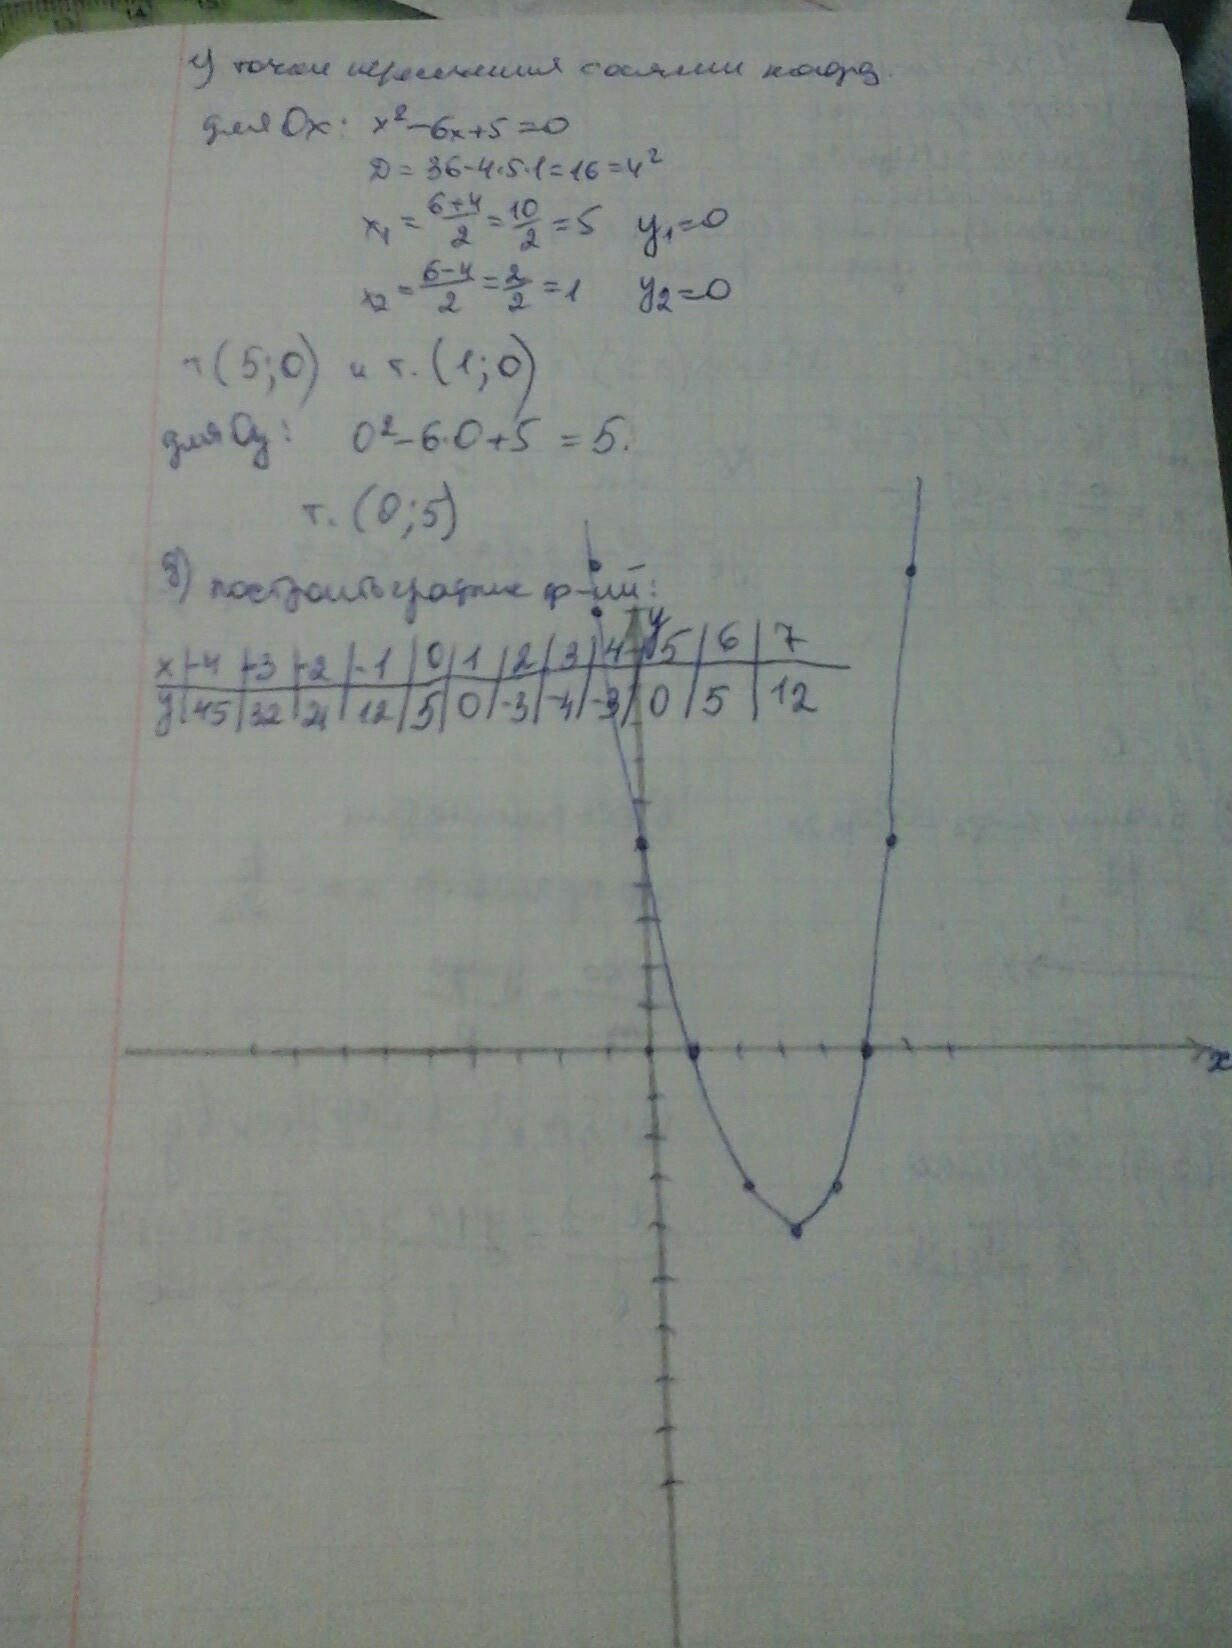 г) точки пересечения с осями коорд.
для Ox: x²-6x+5=0
D=36-4·5·1=16=4²
x₁=(6+4)/2=10/2=5 y₁=0
x₂=(6-4)/2=2/2=1 y₂=0
т(5;0) и т.(1;0)
для Oy: 0²-6·0+5=5.
т.(0;5)
д) построить график ф-ий:
y
x|-4|-3|-2|-1|0|1|2|3|4|5|6|7
y|45|32|21|12|5|0|-3|-4|-3|0|5|12
x